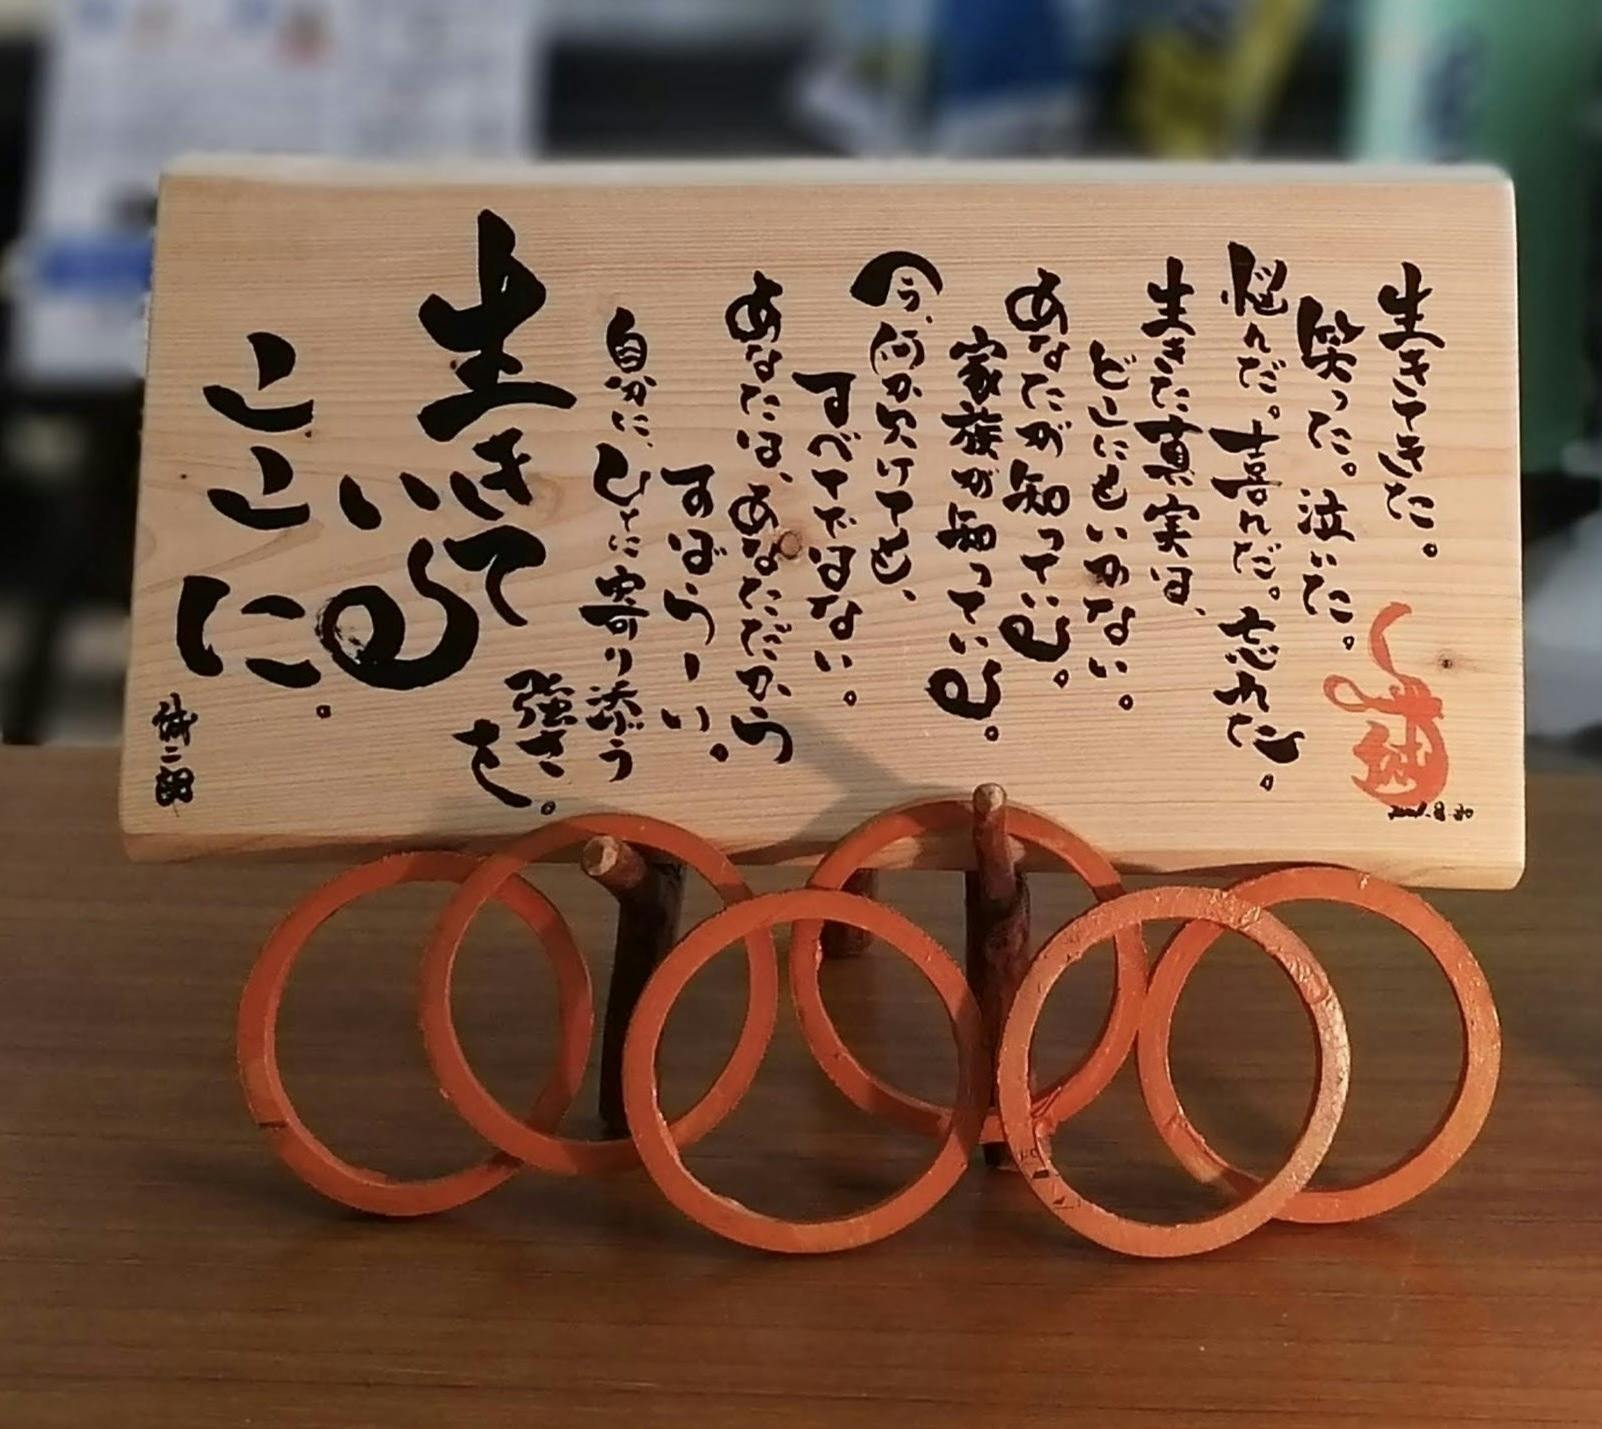 生きてきた。
笑った。泣いた。
悩んだ。喜んだ。忘れた。
生きた真実は、
どこにもいかない。
あなたが知っている。
家族が知っている。
今、何か欠けても、
すべてではない。
あなたは、あなただから
すばらしい。
自分に、ひとに寄り添う
強さを。
生きて
いる
ここに。
誠二朗